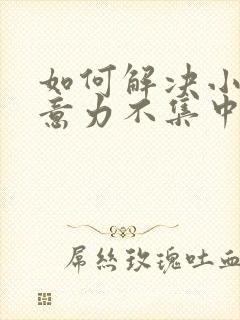 如何解决小
意力不集中
屌丝玫瑰吐血